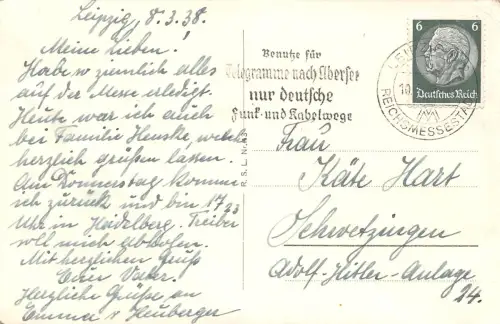 Leipzig, 8.3.38.
Meine Lieben!
Habe w ziemlich alles
auf der Messe erledigt.
Heute war ich auch
bei Familie Henske, welche
herzlich grüßen lassen.
Am Donnerstag komme
ich zurück und bin 17 23
Uhr in Heidelberg. Treiber
soll mich abholen.
Mit herzlichem Gruß
Euer Vater.
Herzliche Grüße an
Emma v Heuberger
Benutze für
Telegramme nach Übersee
nur deutsche
Funk- und Kabelwege
6 6
Deutsches Reich
LEIPZIG
10.
REICHSMESSESTADT
R. S. L. Nr.
Frau
Käte Hart
Schwetzingen
Adolf-Hitler-Anlage
24.